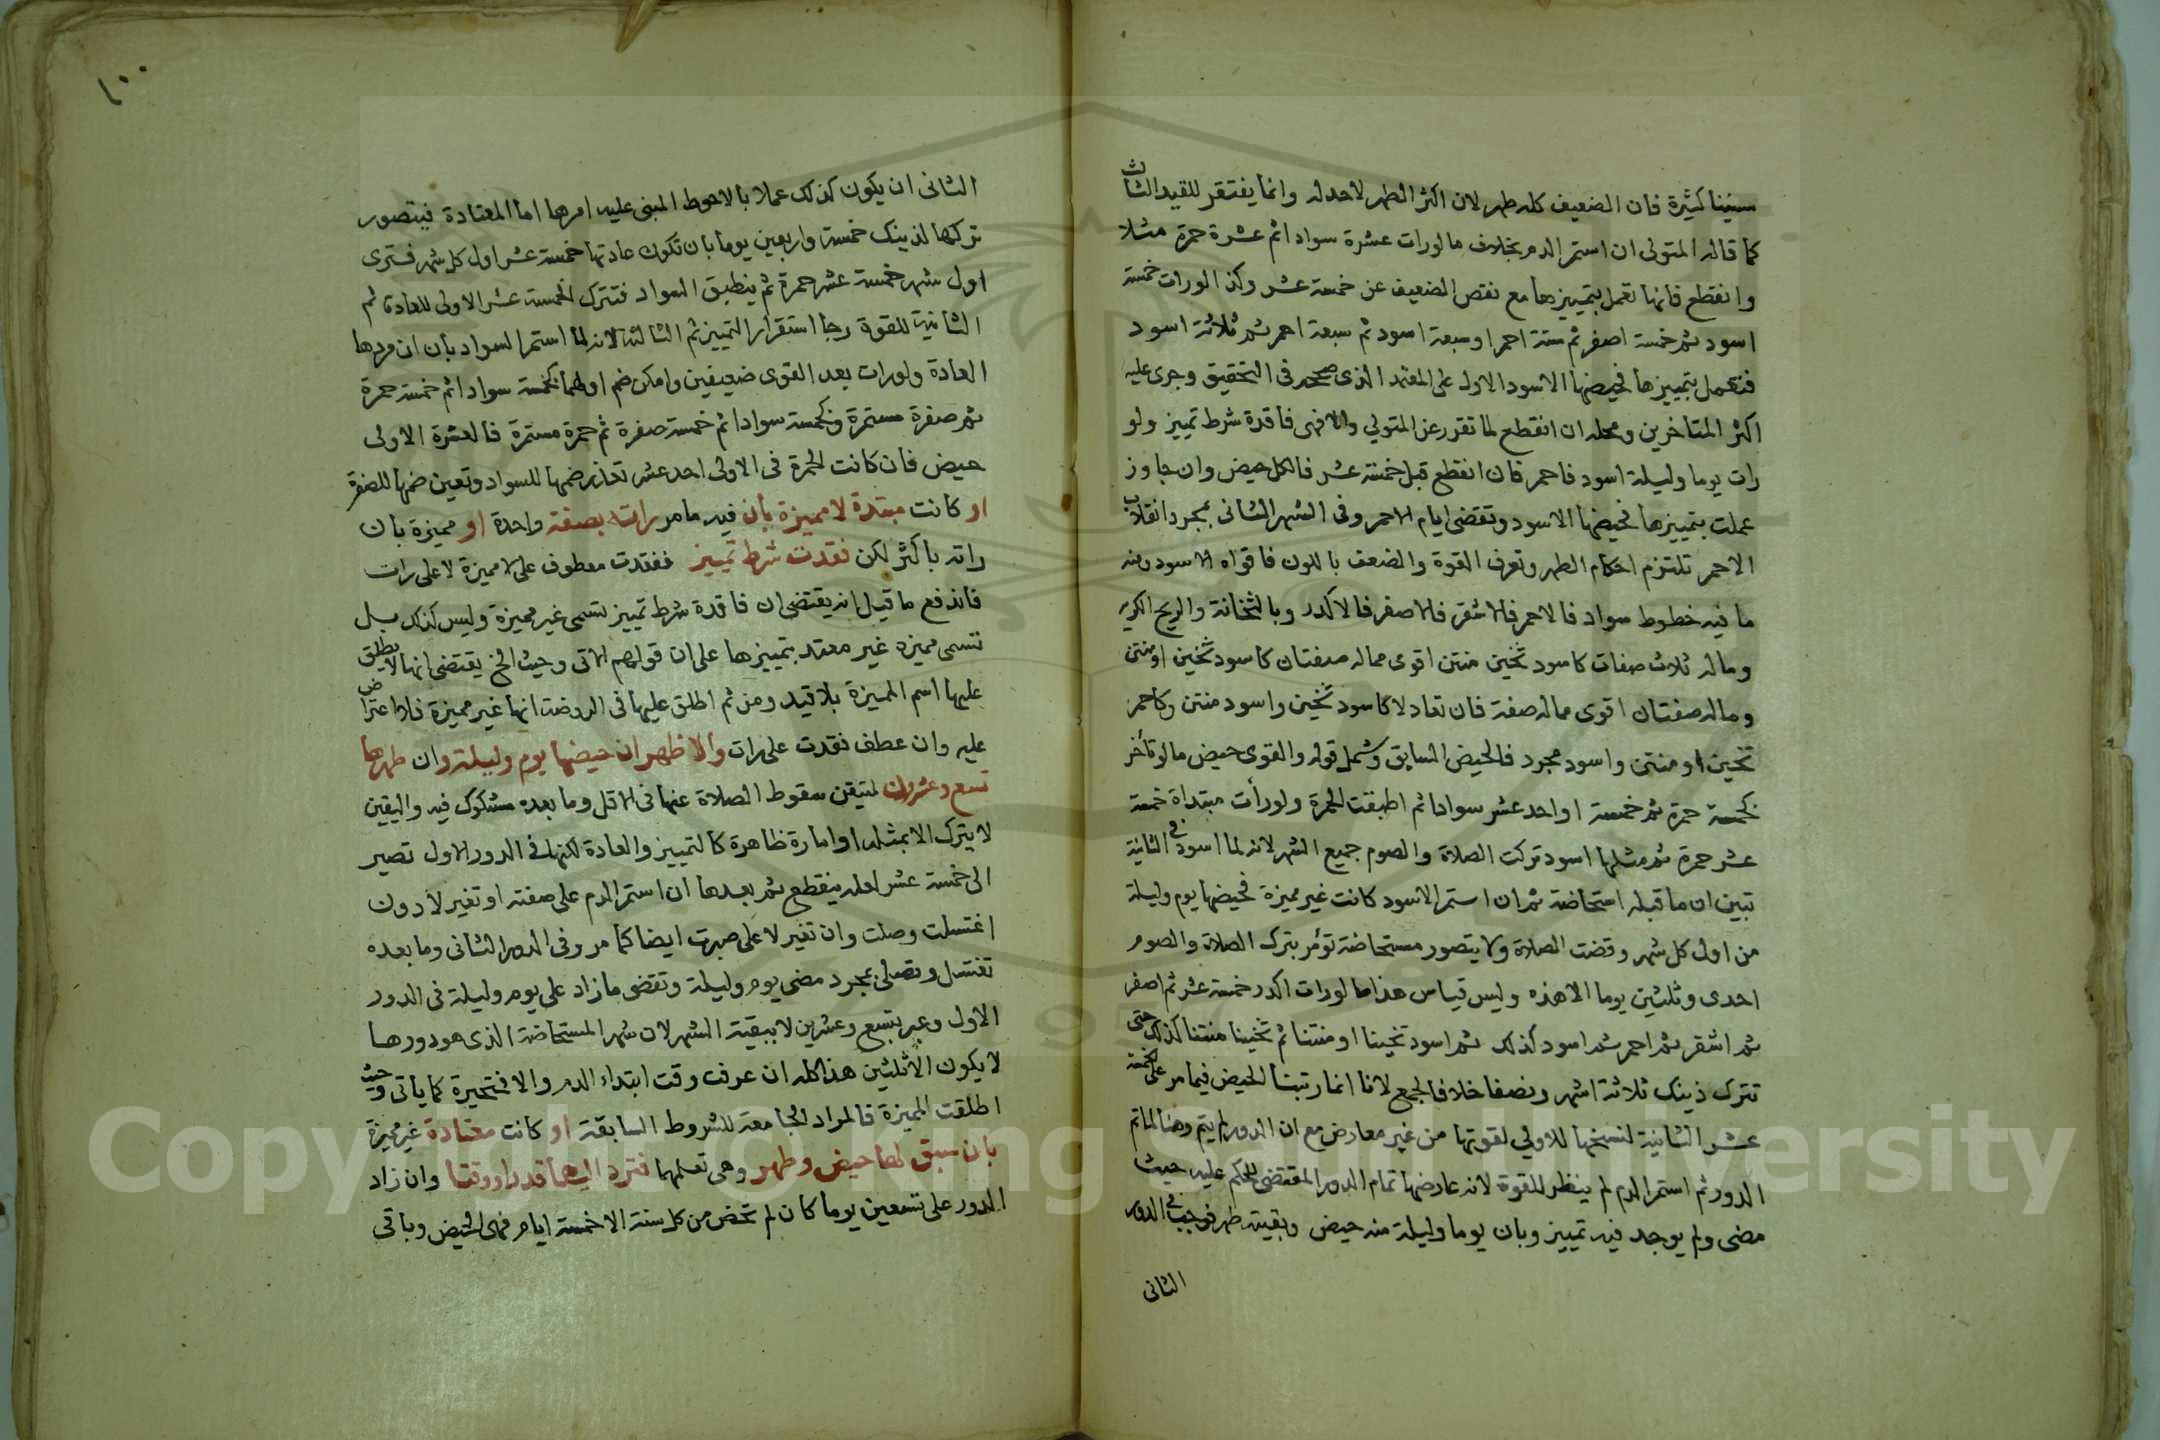 سنينا كثيرة فان الضعيف كله طهر لان اكثر الطهر لاحد له وانما يفتقر للقيد الثالث
كما قاله المتولى ان استمر الدم بخلاف ما لو رات عشرة سوادا ثم عشرة حمرة مثلا
وانقطع فانها تعمل بتمييزها مع نقص الضعيف عن خمسة عشر وكذا لو رات خمسة
اسود ثم خمسة اصفر ثم ستة احمر او سبعة اسود ثم سبعة احمر ثم ثلاثة اسود
فتعمل بتمييزها فحيضها الاسود الاول على المعتمد الذى صححه فى التحقيق وجرى عليه
اكثر المتاخرين ومحله ان انقطع لما تقرر عن المتولي والا فهى فاقدة شرط تمييز ولو
رات يوما وليلة اسود فاحمر فان انقطع قبل خمسة عشر فالكل حيض وان جاوز
عملت بتمييزها فحيضها الاسود وتقضى ايام الاحمر وفى الشهر الثانى بمجرد انقلاب
الاحمر تلتزم احكام الطهر وتعرف القوة والضعف باللون فاقواه الاسود ومنه
ما فيه خطوط سواد فالاحمر فالاشقر فالاصفر فالاكدر وبالثخانة والريح الكريه
وماله ثلاث صفات كاسود ثخين منتن اقوى مماله صفتان كاسود ثخين او منتن
وماله صفتان اقوى مماله صفة فان تعادلا كاسود ثخين واسود منتن وكاحمر
ثخين او منتن واسود مجرد فالحيض السابق وشمل قوله والقوى حيض ما لو تأخر
كخمسة حمرة ثم خمسة او احد عشر سوادا ثم اطبقت الحمرة ولو رأت مبتداة خمسة
عشر حمرة ثم مثلها اسود تركت الصلاة والصوم جميع الشهر لانه لما اسود فى الثانية
تبين ان ما قبله استحاضة ثم ان استمر الاسود كانت غير مميزة فحيضها يوم وليلة
من اول كل شهر وقضت الصلاة ولا يتصور مستحاضة تؤمر بترك الصلاة والصوم
احدى وثلثين يوما الا هذه وليس قياس هذا ما لو رات اكدر خمسة عشر ثم اصفر
ثم اشقر ثم احمر ثم اسود كذلك ثم اسود ثخينا او منتنا ثم ثخينا منتنا كذلك حتى
تترك ذينك ثلاثة اشهر ونصفا خلافا لجمع لانا انما رتبنا الحيض فيما مر على الخمسة
عشر الثانية لنسخها للاولى لقوتها من غير معارض مع ان الدور لم يتم وهنا لما تم
الدور ثم استمر الدم لم ينظر للقوة لانه عارضها تمام الدور المقتضى للحكم عليه حيث
مضى ولم يوجد فيه تمييز وبان يوما وليلة منه حيض وبقيته طهر فوجب فى الدور
الثانى
١٠٠
الثانى ان يكون كذلك عملا بالاحوط المبنى عليه امرها اما المعتادة فيتصور
تركها لذينك خمسة واربعين يوما بان تكون عادتها خمسة عشر اول كل شهر فترى
اول شهر خمسة عشر حمرة ثم ينطبق السواد فتترك الخمسة عشر الاولى للعادة ثم
الثانية للقوة رجا استقرار التمييز ثم الثالثة لانه لما استمر السواد بان ان مردها
العادة ولو رات بعد القوى ضعيفين وامكن ضم اولهما كخمسة سوادا ثم خمسة حمرة
ثم صفرة مستمرة وكخمسة سوادا ثم خمسة صفرة ثم حمرة مستمرة فالعشرة الاولى
حيض فان كانت الحمرة فى الاولى احد عشر تعذر ضمها للسواد وتعين ضمها للصفرة
او كانت مبتدة لا مميزة بأن فيه ما مر راته بصفة واحدة او مميزة بان
راته باكثر لكن فقدت شرط تمييز ففقدت معطوف على لا مميزة لا على رات
فاندفع ما قيل انه يقتضى ان فاقدة شرط تمييز تسمى غير مميزة وليس كذلك بل
تسمى مميزة غير معتد بتمييزها على ان قولهم الاتى وحيث الخ يقتضى انها لا يطلق
عليها اسم المميزة بلا قيد ومن ثم اطلق عليها فى الروضة انها غير مميزة فلا اعتراض
عليه وان عطف فقدت على رات والاظهر ان حيضها يوم وليلة وان طهرها
تسع وعشرون لتيقن سقوط الصلاة عنها فى الاقل وما بعده مشكوك فيه واليقين
لا يترك الا بمثله او امارة ظاهرة كالتمييز والعادة لكنها فى الدور الاول تصير
الى خمسة عشر لعله ينقطع ثم بعدها ان استمر الدم على صفته او تغير لا دون
اغتسلت وصلت وان تغير لا على صبرت ايضا كما مر وفى الدور الثانى وما بعده
تغتسل وتصلى بمجرد مضى يوم وليلة وتقضى ما زاد على يوم وليلة فى الدور
الاول وعبر بتسع وعشرين لا ببقية الشهر لان شهر المستحاضة الذى هو دورها
لا يكون الا ثلثين هذا كله ان عرف وقت ابتداء الدم والا فمتحيرة كما ياتى وحيث
اطلقت المميزة فالمراد الجامعة للشروط السابقة او كانت معتادة غير مميزة
بان سبق لها حيض وطهر وهى تعلمهما فترد اليهما قدرا ووقتا وان زاد
الدور على تسعين يوما كان لم تحض من كل سنة الا خمسة ايام فهى الحيض وباقى
Copyright © King Saud University